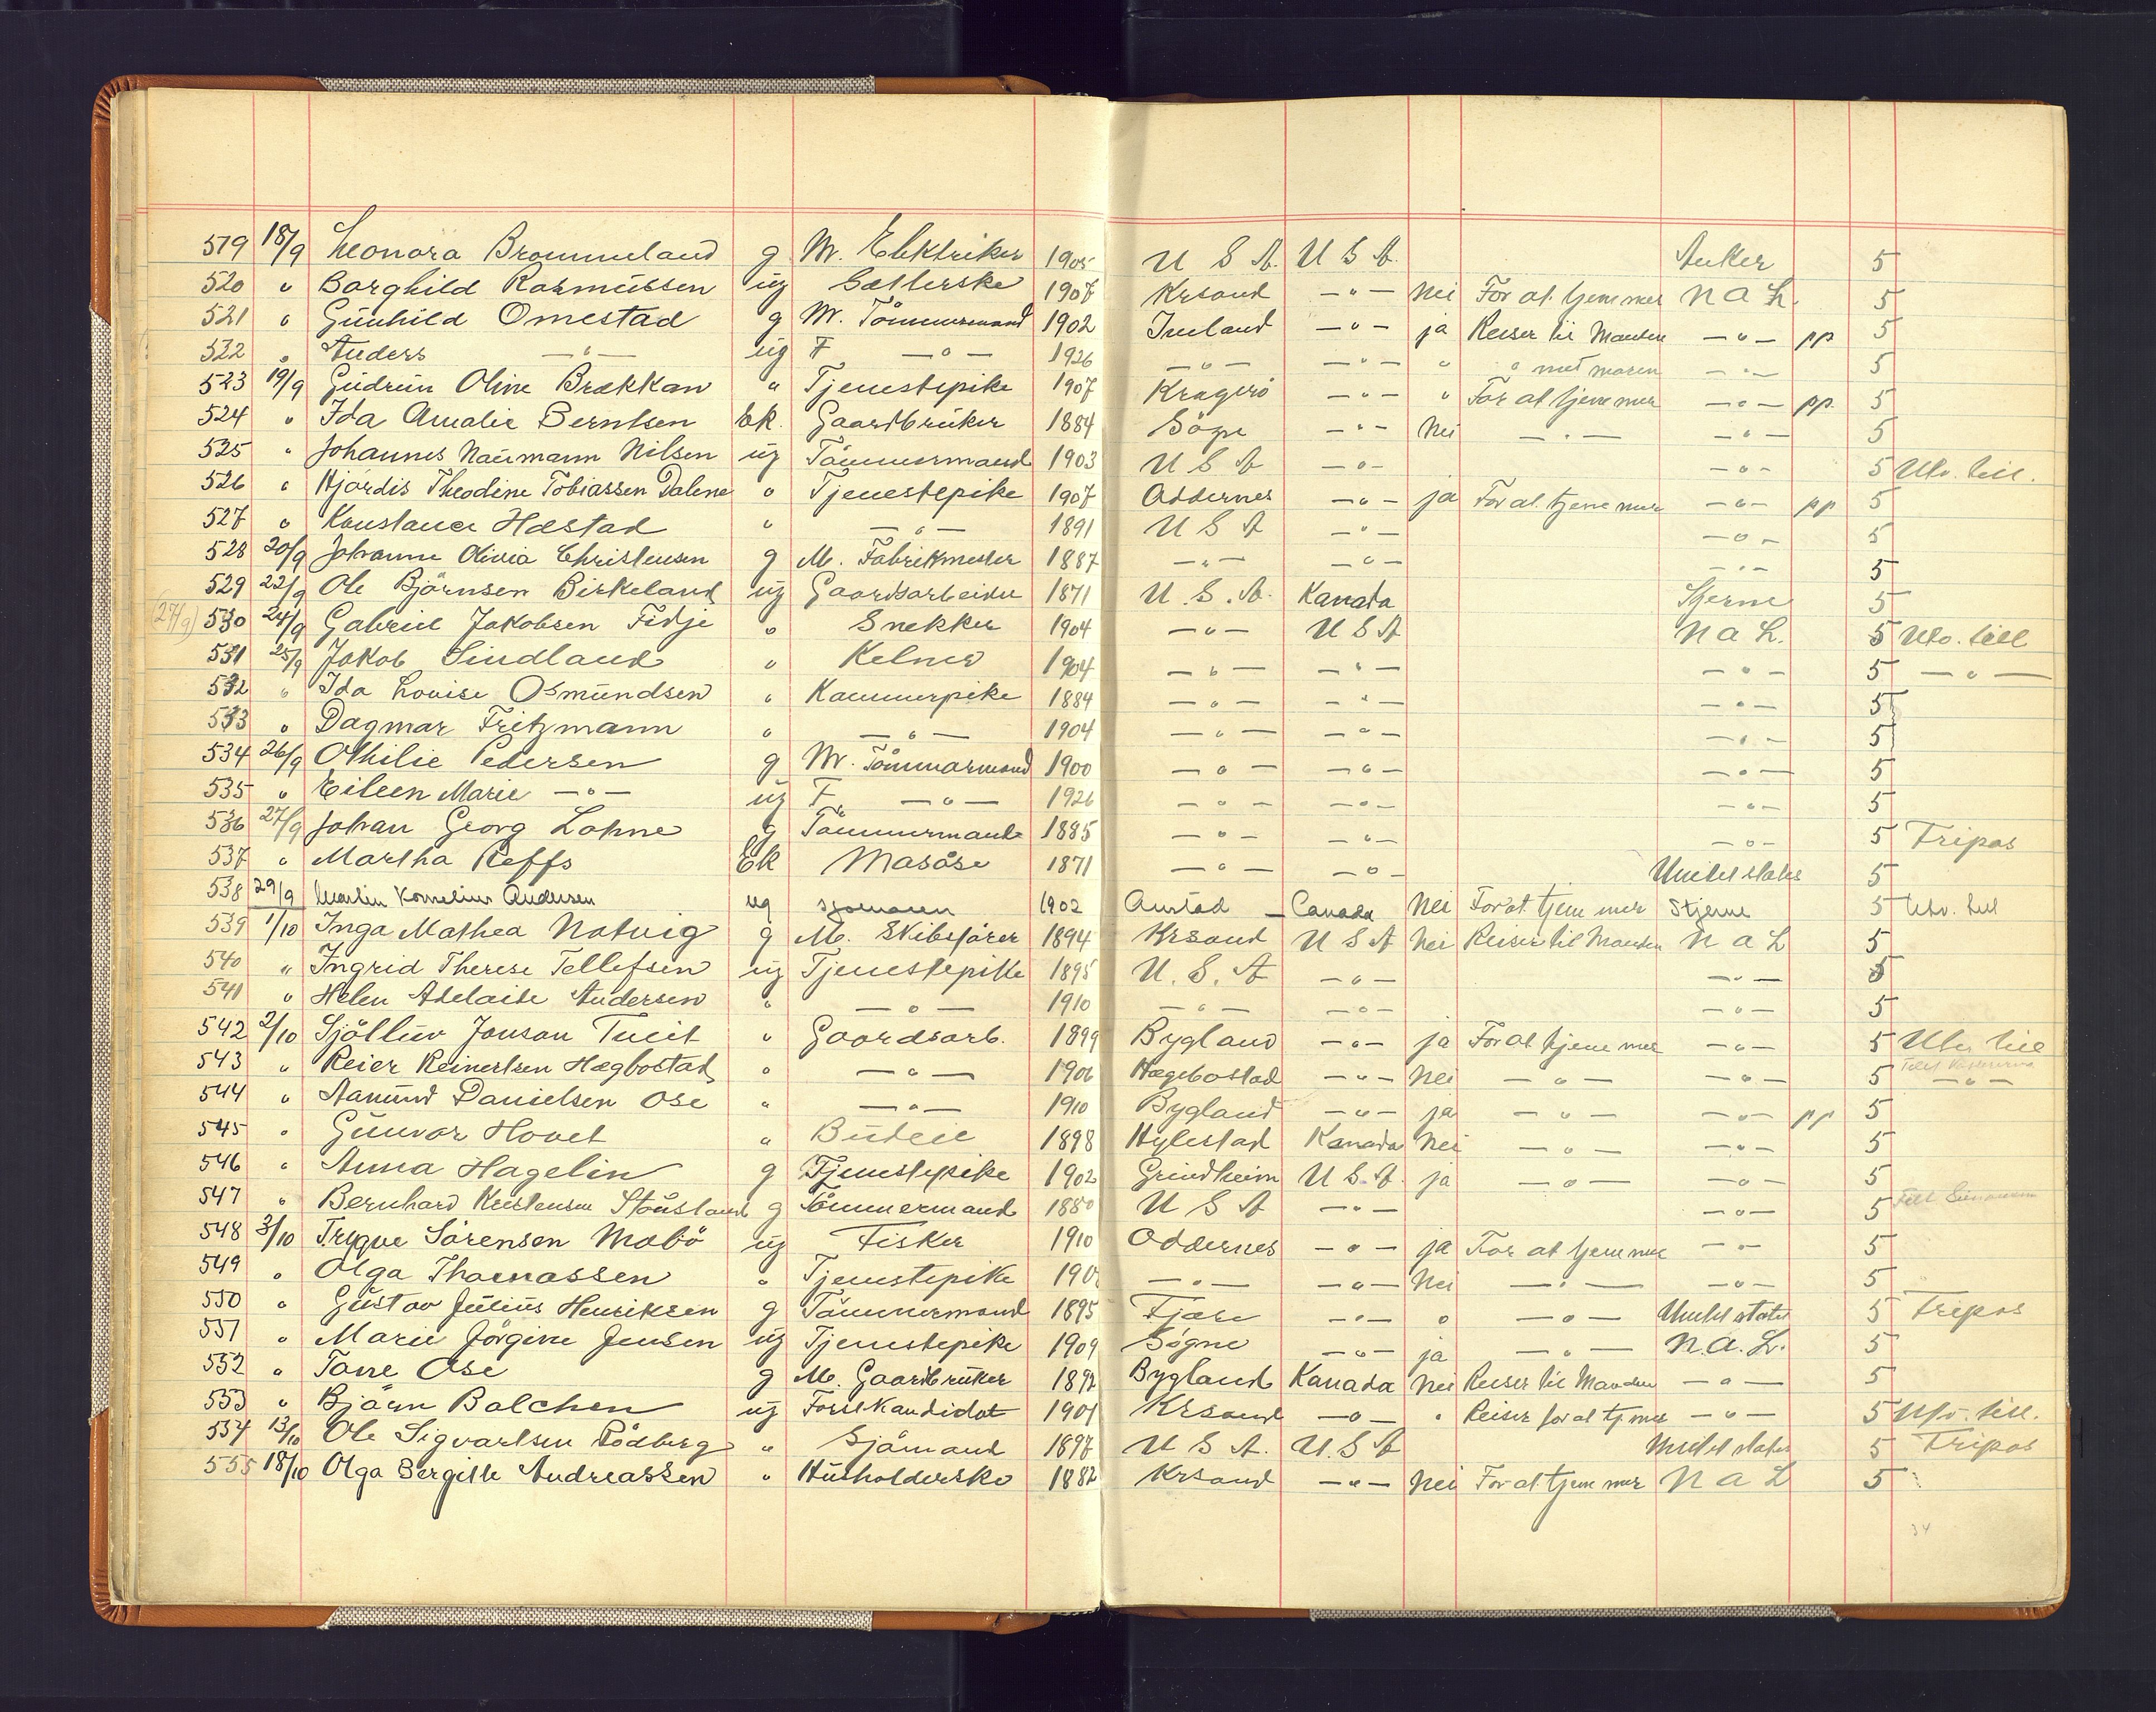 519 18/9 Leonora Brommeland g M. Elektriker 1905 U S A. U S A. Anker 5
520 " Borghild Rasmussen ug Sætterske 1907 Krsand —"— Nei For at tjene mer N A L. 5
521 " Gunhild Omestad g M. Tömmermand 1902 Iveland —"— ja Reiser til Manden —"— pp 5
522 " Anders —"— ug F —"— 1926 —"— —"— " " med moren —"— 5
523 19/9 Gudrun Oline Brækkan " Tjenestepike 1907 Kragerö —"— " For at tjene mer —"— pp. 5
524 " Ida Amalie Berntsen Ek. Gaardbruker 1884 Sögne —"— Nei —"— —"— 5
525 " Johannes Naumann Nilsen ug Tömmermand 1903 U S A —"— —"— 5 Utv. till.
526 " Hjördis Theodine Tobiassen Dalene " Tjenestepike 1907 Oddernes —"— ja For at tjene mer —"— pp 5
527 " Konstance Hæstad " —"— 1891 U S A —"— —"— 5
528 20/9 Johanne Olivia Christensen g M. Fabrikmester 1887 —"— —"— —"— 5
529 22/9 Ole Björnsen Birkeland ug Gaardsarbeider 1871 U. S. A. Kanada Stjerne 5
(27/9) 530 24/9 Gabriel Jakobsen Fidje " Snekker 1904 —"— U S A N A L. 5 Utv. till
531 25/9 Jakob Sindland " Kelner 1904 —"— —"— —"— 5 —"—
532 " Ida Lovise Osmundsen " Kammerpike 1884 —"— —"— —"— 5
533 " Dagmar Fritzmann " —"— 1904 —"— —"— —"— 5
534 26/9 Othilie Pedersen g M. Tömmermand 1900 —"— —"— —"— 5
535 " Eileen Marie —"— ug F —"— 1926 —"— —"— —"— 5
536 27/9 Johan Georg Lohne g Tömmermand 1885 —"— —"— —"— 5 Tripas
537 " Martha Reffs Ek Masöse 1871 —"— —"— United states 5
538 29/9 Martin Kornelius Andersen ug sjömann 1902 Canada Nei For at tjene mer Stjerne 5 Utv. till
539 1/10 Inga Mathea Natvig g M. Skibsförer 1894 Krsand U S A Nei Reiser til Manden N A L 5
540 " Ingrid Therese Tellefsen ug Tjenestepike 1895 U. S. A —"— —"— 5
541 " Helen Adelaide Andersen " —"— 1910 —"— —"— —"— 5
542 2/10 Sjölluv Jonson Tveit " Gaardsarb. 1899 Bygland —"— ja For at tjene mer —"— 5 Utv. till
543 " Reier Reinertsen Hægbostad " —"— 1906 Hægebostad —"— Nei —"— —"— 5 —"—
544 " Aanund Danielsen Ose " —"— 1910 Bygland —"— ja —"— —"— pp 5
545 " Gunvor Hovet " Budeie 1898 Hylestad Kanada Nei —"— —"— 5
546 " Anna Hagelin g Tjenestepike 1902 Grindheim U S. A. ja —"— —"— 5
547 " Bernhard Kristensen Stöusland g Tömmermand 1880 U S A —"— —"— 5
548 3/10 Trygve Sörensen Mabö ug Fisker 1910 Oddernes —"— ja For at tjene mer —"— 5
549 " Olga Thomassen " Tjenestepike —"— —"— Nei —"— —"— 5
550 " Gustav Julius Henriksen g Tömmermand 1895 Fjære —"— " —"— United states 5 Tripos
551 " Marie Jörgine Jensen ug Tjenestepike 1909 Sögne —"— ja —"— N. A. L. 5
552 " Tone Ose g M. Gaardbruker 1892 Bygland Kanada Nei Reiser til Manden —"— 5
553 " Björn Balchen ug Forstkandidat 1901 Krsand —"— " Reiser for at tj mer —"— 5 Utv. till.
554 13/10 Ole Sigvartsen Rödberg " Sjömand 1897 U S A. U. S A United states 5 Tripos
555 18/10 Olga Bergitte Andreassen " Husholderske 1882 Krsand —"— Nei For at tjene mer N A L 5
34